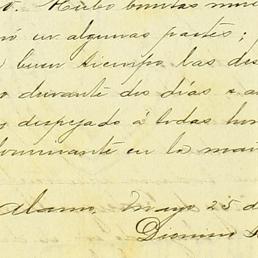 Hubo bonitas
ó en algunas partes;
buen tiempo las des
o durante dos días
despejado á todas
dominante en la
Alamo, Mayo 25 d